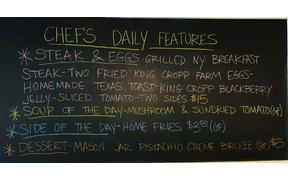 CHEF'S DAILY FEATURES
* STEAK & EGGS - GRILLED NY BREAKFAST
STEAK-TWO FRIED KING CROPP FARM EGGS-
HOMEMADE TEXAS TOAST-KING CROPP BLACKBERRY
JELLY-SLICED TOMATO-TWO SIDES $15
* SOUP OF THE DAY-MUSHROOM & SUNDRIED TOMATO (GF)
* SIDE OF THE DAY-HOME FRIES $3.50 (GF)
* DESSERT-MASON JAR PISTACHIO CREME BRULEE (GF) $5